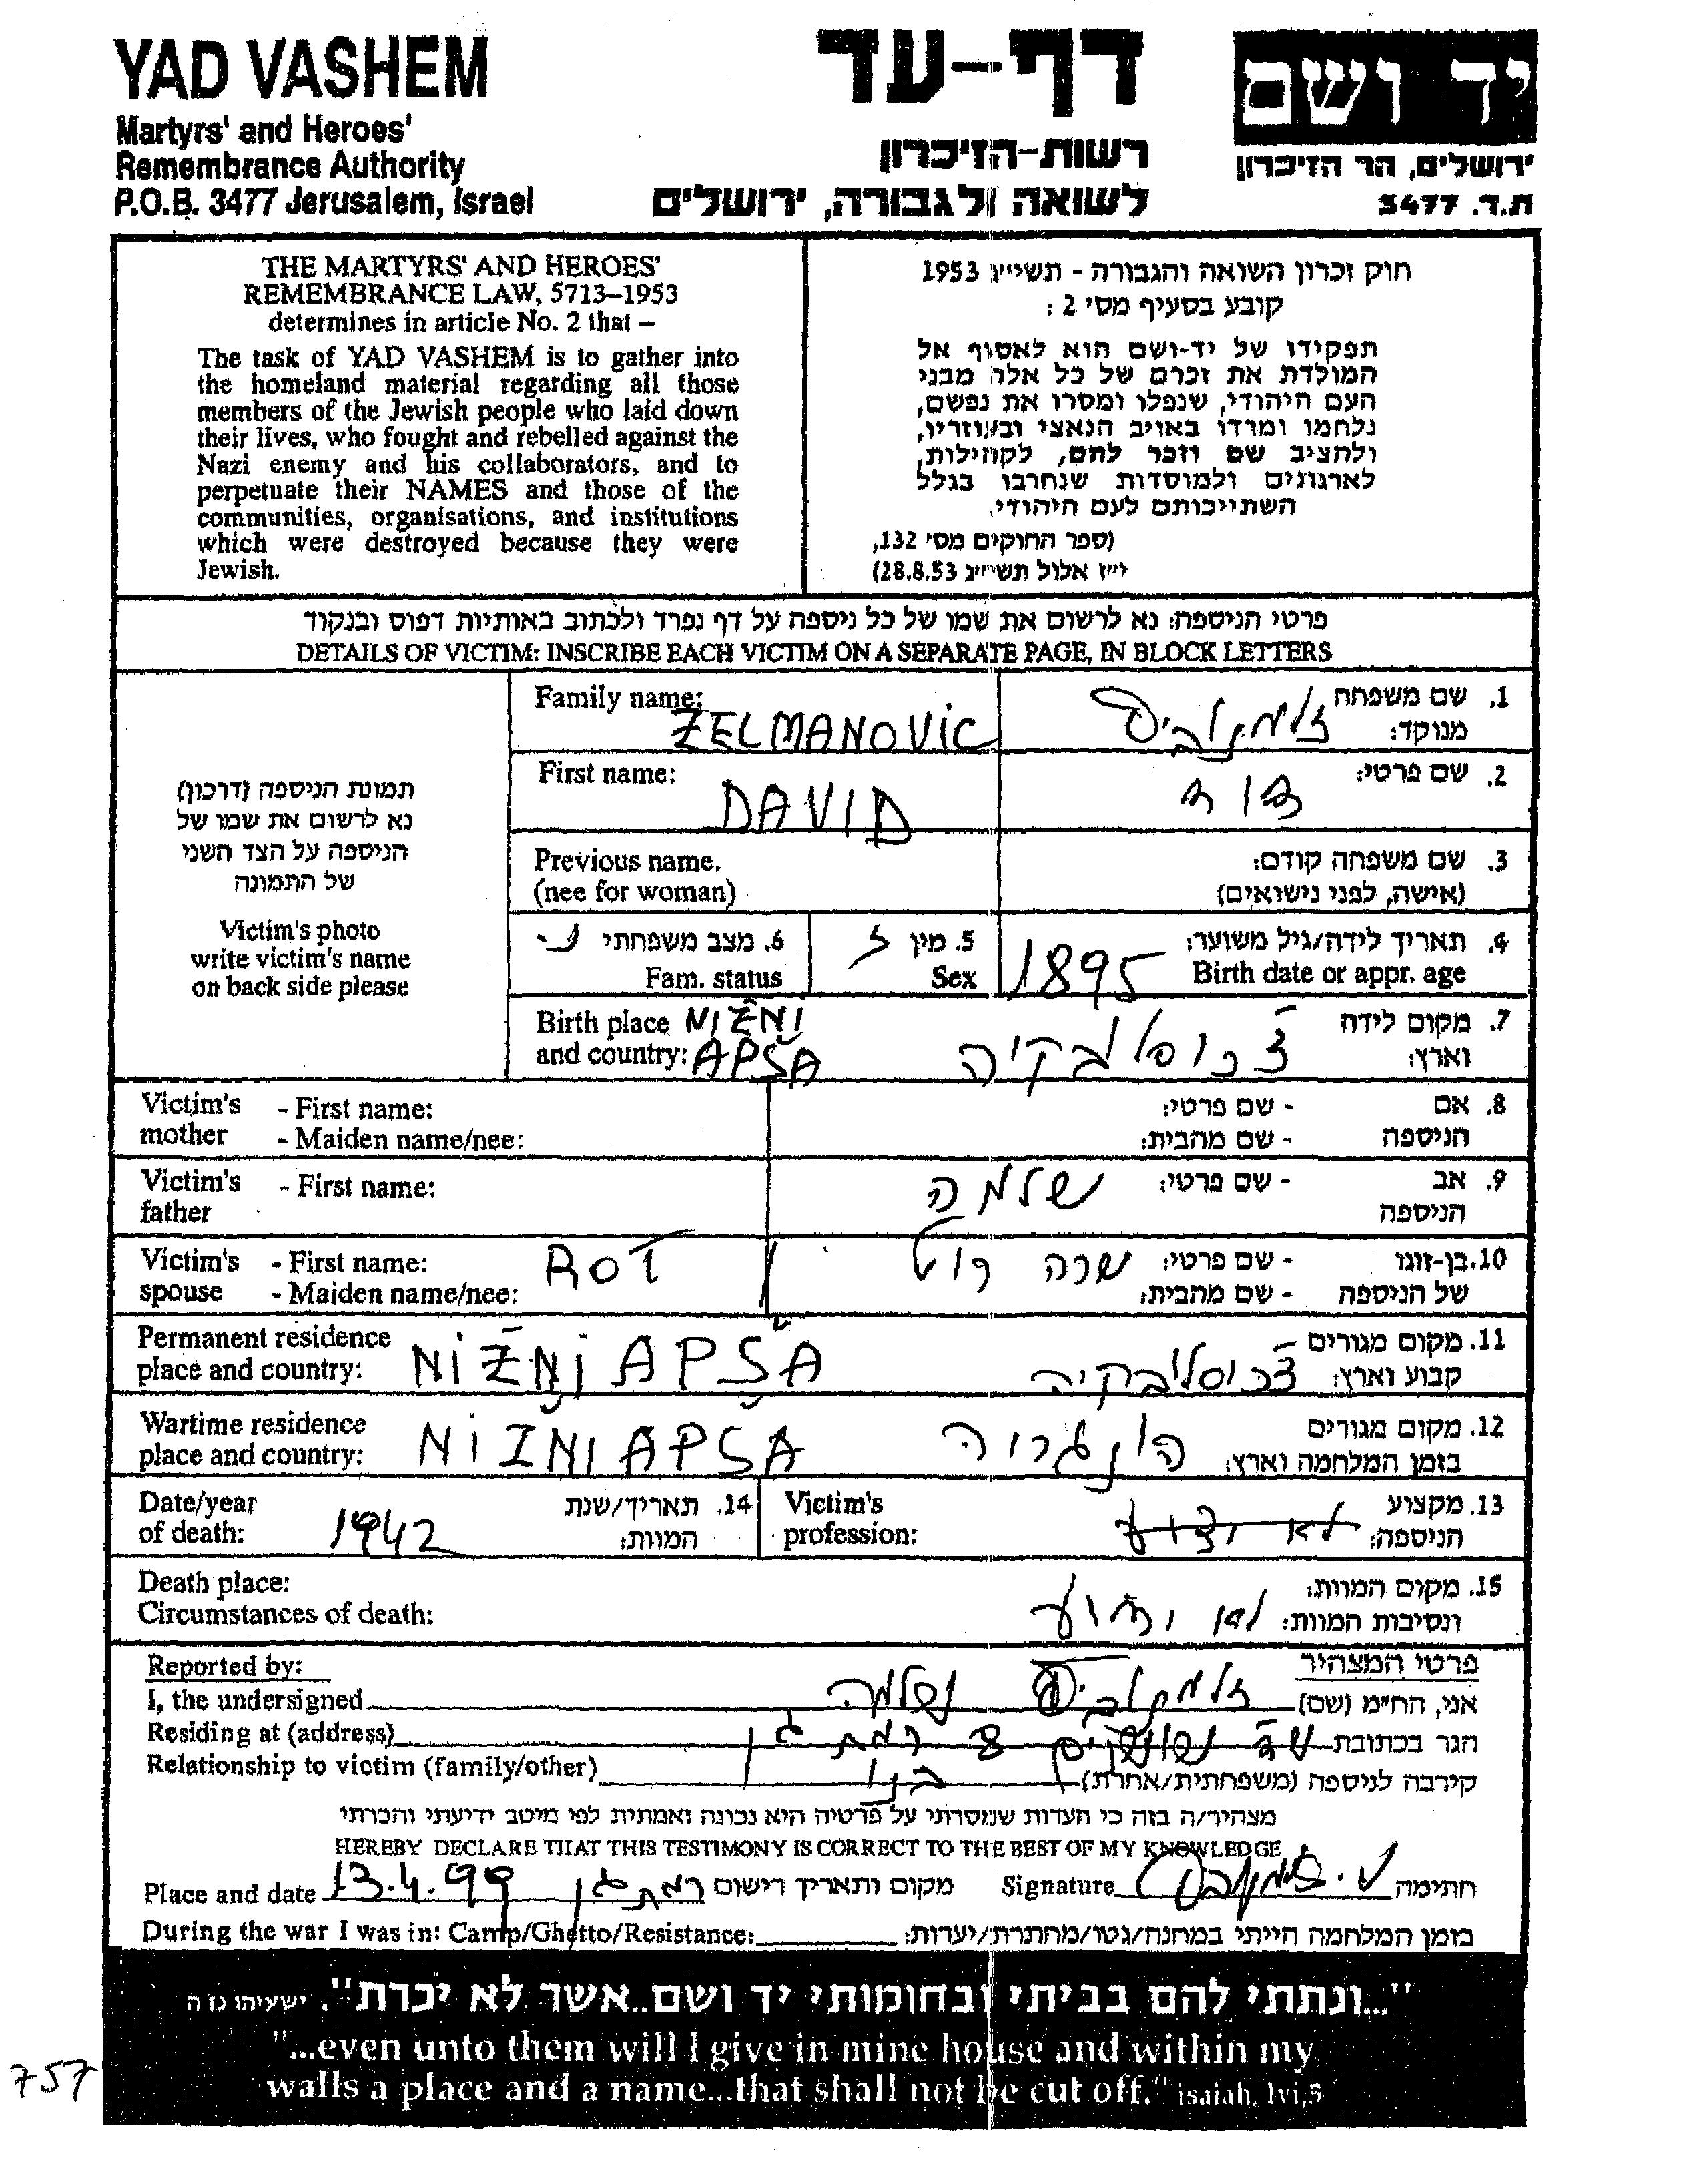 YAD VASHEM
Martyrs' and Heroes'
Remembrance Authority
P.O.B. 3477 Jerusalem, Israel
דף-עד
רשות-הזיכרון
לשואה ולגבורה, ירושלים
יד ושם
ירושלים, הר הזיכרון
ת.ד. 3477
THE MARTYRS' AND HEROES'
REMEMBRANCE LAW, 5713–1953
determines in article No. 2 that –
The task of YAD VASHEM is to gather into
the homeland material regarding all those
members of the Jewish people who laid down
their lives, who fought and rebelled against the
Nazi enemy and his collaborators, and to
perpetuate their NAMES and those of the
communities, organisations, and institutions
which were destroyed because they were
Jewish.
חוק זכרון השואה והגבורה - תשי״ג 1953
קובע בסעיף מס׳ 2 :
תפקידו של יד-ושם הוא לאסוף אל
המולדת את זכרם של כל אלה מבני
העם היהודי, שנפלו ומסרו את נפשם,
נלחמו ומרדו באויב הנאצי ובעוזריו,
ולהציב שם וזכר להם, לקהילות,
לארגונים ולמוסדות שנחרבו בגלל
השתייכותם לעם היהודי.
(ספר החוקים מס׳ 132,
י״ז אלול תשי״ג 28.8.53)
פרטי הניספה: נא לרשום את שמו של כל ניספה על דף נפרד ולכתוב באותיות דפוס ובנקוד
DETAILS OF VICTIM: INSCRIBE EACH VICTIM ON A SEPARATE PAGE, IN BLOCK LETTERS
תמונת הניספה (דרכון)
נא לרשום את שמו של
הניספה על הצד השני
של התמונה
Victim's photo
write victim's name
on back side please
Family name: ZELMANOVIC
1. שם משפחה מנוקד: זלמנוביץ
First name: DAVID
2. שם פרטי: דוד
Previous name.
(nee for woman)
3. שם משפחה קודם:
(אישה, לפני נישואים)
4. תאריך לידה/גיל משוער:
Birth date or appr. age 1895
5. מין ז
Sex
6. מצב משפחתי נ.
Fam. status
Birth place NIŽNI
and country: APŠA
7. מקום לידה
וארץ: צ׳כוסלובקיה
Victim's - First name:
mother - Maiden name/nee:
8. אם - שם פרטי:
הניספה - שם מהבית:
Victim's - First name:
father
9. אב - שם פרטי: שלמה
הניספה
Victim's - First name: ROT
spouse - Maiden name/nee:
10. בן-זוגו - שם פרטי: שרה רוט
של הניספה - שם מהבית:
Permanent residence
place and country: NiŽNi APŠA
11. מקום מגורים
קבוע וארץ: צ׳כוסלובקיה
Wartime residence
place and country: NiŽNI APŠA
12. מקום מגורים
בזמן המלחמה וארץ: הונגריה
Date/year
of death: 1942
14. תאריך/שנת
המוות:
Victim's
profession:
13. מקצוע
הניספה: לא ידוע
Death place:
Circumstances of death:
15. מקום המוות:
ונסיבות המוות: לא ידוע
Reported by:
פרטי המצהיר
I, the undersigned
אני, הח״מ (שם) זלמנוביץ שלמה
Residing at (address)
הגר בכתובת 8 רמת גן
Relationship to victim (family/other)
קירבה לניספה (משפחתית/אחרת) בנו
מצהיר/ה בזה כי העדות שמסרתי על פרטיה היא נכונה ואמתית לפי מיטב ידיעתי והכרתי
HEREBY DECLARE THAT THIS TESTIMONY IS CORRECT TO THE BEST OF MY KNOWLEDGE
Place and date 13.4.99 רמת גן מקום ותאריך רישום
Signature ש. זלמנוביץ חתימה
During the war I was in: Camp/Ghetto/Resistance:
בזמן המלחמה הייתי במחנה/גטו/מחתרת/יערות:
"...ונתתי להם בביתי ובחומותי יד ושם..אשר לא יכרת". ישעיהו נו ה
"...even unto them will I give in mine house and within my
walls a place and a name...that shall not be cut off." isaiah, lvi,5
757